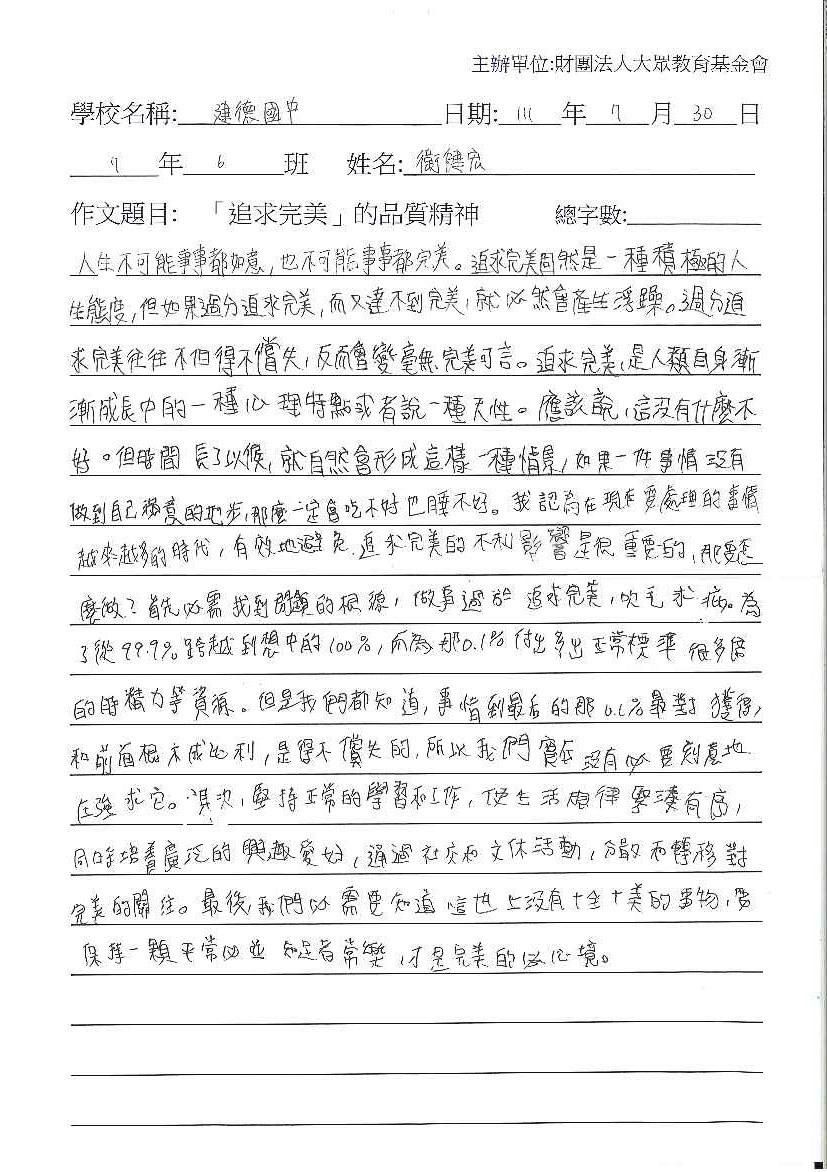 主辦單位:財團法人大眾教育基金會
學校名稱: 建德國中 日期: 111 年 7 月 30 日
7 年 6 班 姓名: 衛健宏
作文題目: 「追求完美」的品質精神 總字數:
人生不可能事事都如意,也不可能事事都完美。追求完美固然是一種積極的人
生態度,但如果過分追求完美,而又達不到完美,就必然會產生浮躁。過分追
求完美往往不但得不償失,反而會變毫無完美可言。追求完美,是人類自身漸
漸成長中的一種心理特點或者說一種天性。應該說,這沒有什麼不
好。但時間長了以候,就自然會形成這樣一種情景,如果一件事情沒有
做到自己滿意的地步,那麼一定會吃不好也睡不好。我認為在現在要處理的事情
越來越多的時代,有效地避免追求完美的不利影響是很重要的,那要怎
麼做?首先必需找到問題的根源,做事過於追求完美,吹毛求病。為
了從99.9%跨越到想中的100%,而為那0.1%付出多出正常標準很多倍
的時精力等資源。但是我們都知道,事情到最后的那0.1%最對獲得,
和前面根本成比利,是得不償失的,所以我們實在沒有必要刻意地
在強求它。其次,堅持正常的學習和工作,使生活規律緊湊有序,
同時培養廣泛的興趣愛好,通過社交和文休活動,分散和轉移對
完美的關注。最後,我們必需要知道這世上沒有十全十美的事物,要
保持一顆平常心並知足者常樂,才是完美的心境。